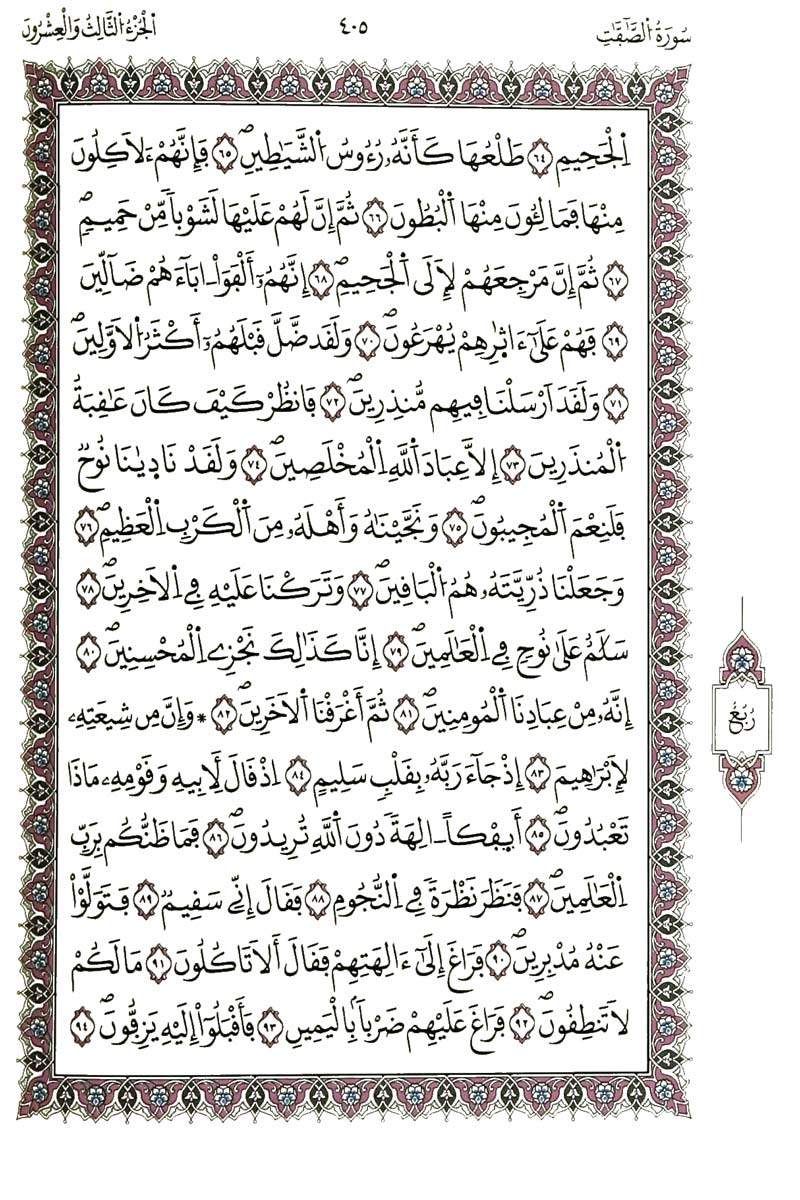 سُورَةُ الصَّٰٓفَّٰتِ
٤٠٥
اَلْجُزْءُ الثَّالِثُ وَالْعِشْرُونَ
اِ۬لْجَحِيمِ ٦٤ طَلْعُهَا كَأَنَّهُۥ رُءُوسُ اُ۬لشَّيَٰطِينِۖ ٦٥ فَإِنَّهُمْ ءَلَاكِلُونَ
مِنْهَا فَمَالِـُٔونَ مِنْهَا اَ۬لْبُطُونَۖ ٦٦ ثُمَّ إِنَّ لَهُمْ عَلَيْهَا لَشَوْباٗ مِّنْ حَمِيمٖۖ
٦٧ ثُمَّ إِنَّ مَرْجِعَهُمْ لَإِلَى اَ۬لْجَحِيمِۖ ٦٨ إِنَّهُمُۥٓ أَلْفَوَاْ ـ ابَآءَهُمْ ضَآلِّينَ
٦٩ فَهُمْ عَلَىٰٓ ءَاثٰ۪رِهِمْ يُهْرَعُونَۖ ٧٠ وَلَقَد ضَّلَّ قَبْلَهُمُۥٓ أَكْثَرُ اُ۬لَاوَّلِينَۖ
٧١ وَلَقَدَ اَرْسَلْنَا فِيهِم مُّنذِرِينَۖ ٧٢ فَانظُرْ كَيْفَ كَانَ عَٰقِبَةُ
اُ۬لْمُنذَرِينَ ٧٣ إِلَّا عِبَادَ اَ۬للَّهِ اِ۬لْمُخْلَصِينَۖ ٧٤ وَلَقَدْ نَاد۪يٰنَا نُوحٞ
فَلَنِعْمَ اَ۬لْمُجِيبُونَۖ ٧٥ وَنَجَّيْنَٰهُ وَأَهْلَهُۥ مِنَ اَ۬لْكَرْبِ اِ۬لْعَظِيمِۖ ٧٦
وَجَعَلْنَا ذُرِّيَّتَهُۥ هُمُ اُ۬لْبَاقِينَۖ ٧٧ وَتَرَكْنَا عَلَيْهِ فِے اِ۬لَاخِرِينَۖ ٧٨
سَلَٰمٌ عَلَىٰ نُوحٖ فِے اِ۬لْعَٰلَمِينَۖ ٧٩ إِنَّا كَذَٰلِكَ نَجْزِے اِ۬لْمُحْسِنِينَۖ ٨٠
إِنَّهُۥ مِنْ عِبَادِنَا اَ۬لْمُومِنِينَۖ ٨١ ثُمَّ أَغْرَقْنَا اَ۬لَاخَرِينَۖ ٨٢ * وَإِنَّ مِن شِيعَتِهِۦ
لَإِبْرَٰهِيمَ ٨٣ إِذْ جَآءَ رَبَّهُۥ بِقَلْبٖ سَلِيمٍ ٨٤ اِذْ قَالَ لِأَبِيهِ وَقَوْمِهِۦ مَاذَا
تَعْبُدُونَۖ ٨٥ أَئِفْكاً ـ الِهَةٗ دُونَ اَ۬للَّهِ تُرِيدُونَۖ ٨٦ فَمَا ظَنُّكُم بِرَبِّ
اِ۬لْعَٰلَمِينَۖ ٨٧ فَنَظَرَ نَظْرَةٗ فِے اِ۬لنُّجُومِ ٨٨ فَقَالَ إِنِّے سَقِيمٞۖ ٨٩ فَتَوَلَّوْاْ
عَنْهُ مُدْبِرِينَۖ ٩٠ فَرَاغَ إِلَىٰٓ ءَالِهَتِهِمْ فَقَالَ أَلَا تَاكُلُونَ ٩١ مَا لَكُمْ
لَا تَنطِقُونَۖ ٩٢ فَرَاغَ عَلَيْهِمْ ضَرْباَۢ بِالْيَمِينِ ٩٣ فَأَقْبَلُوٓاْ إِلَيْهِ يَزِفُّونَۖ ٩٤
رُبُعُ